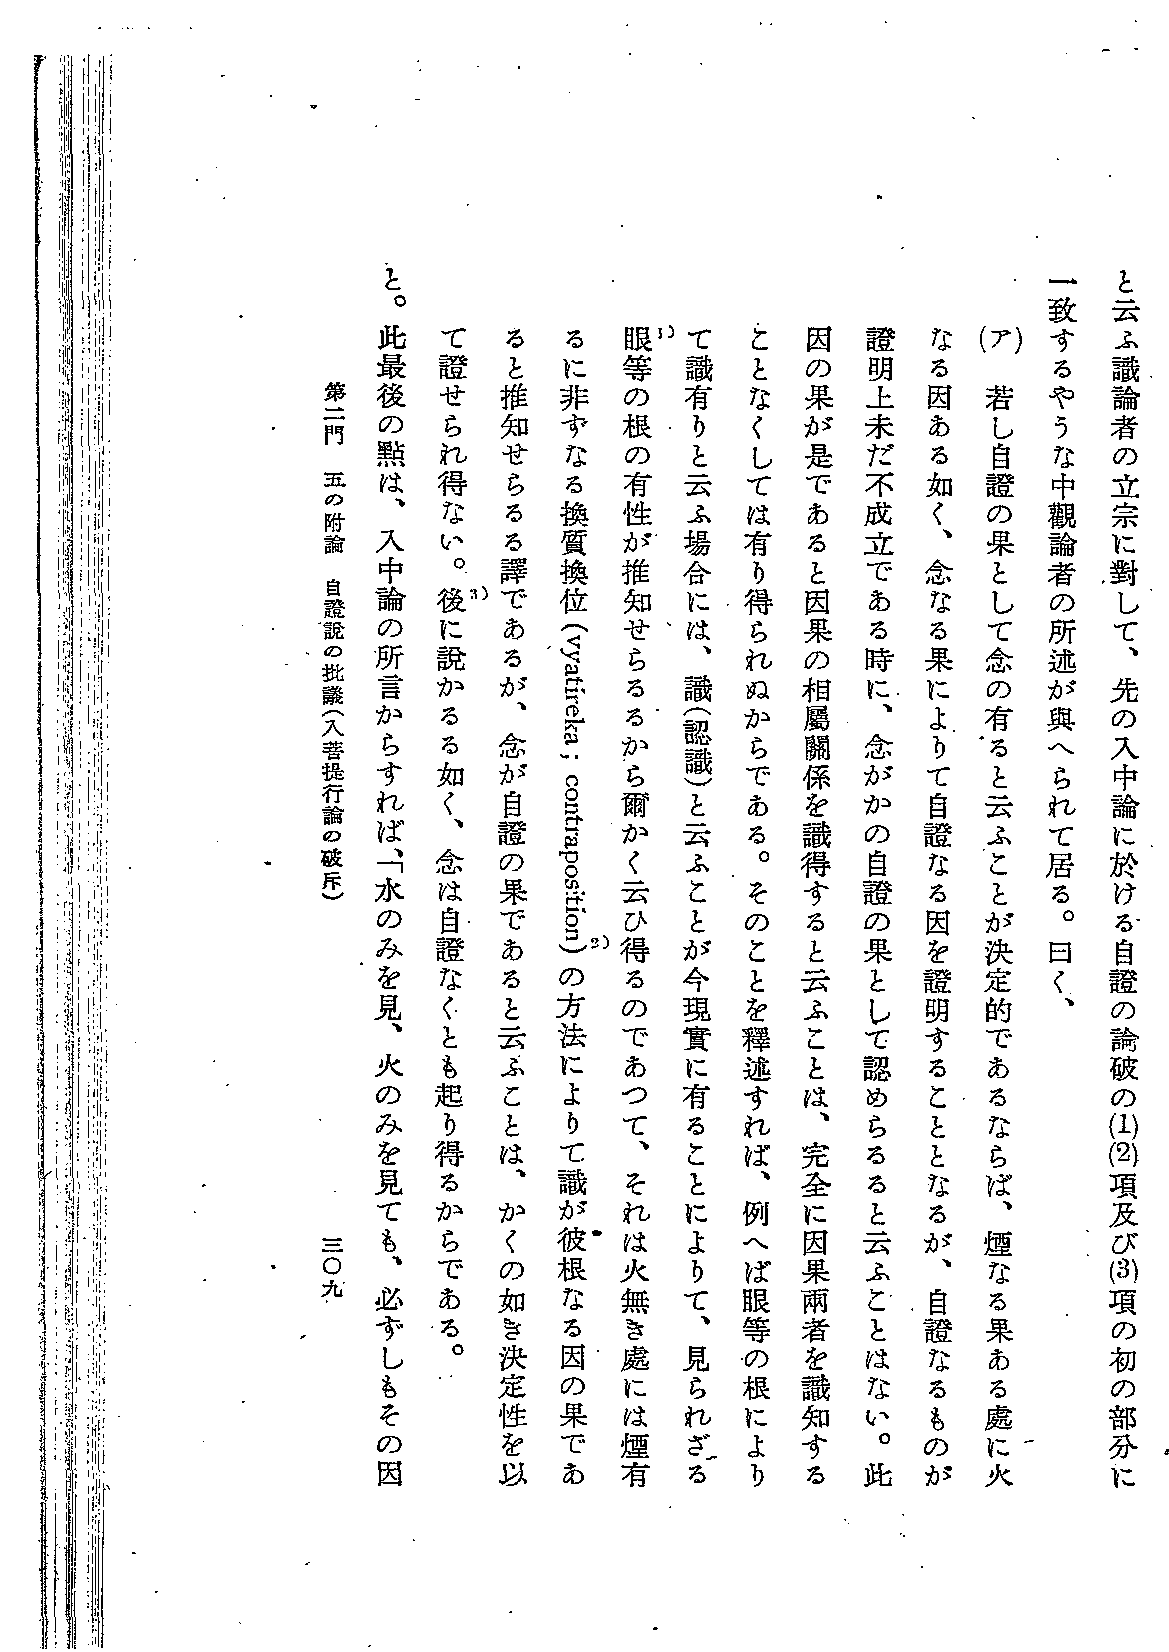 と云ふ識論者の立宗に對して、先の入中論に於ける自證の論破の(1)(2)項及び(3)項の初の部分に
一致するやうな中觀論者の所述が與へられて居る。曰く、
(ア) 若し自證の果として念の有ると云ふことが決定的であるならば、煙なる果ある處に火
なる因ある如く、念なる果によりて自證なる因を證明することとなるが、自證なるものが
證明上未だ不成立である時に、念がかの自證の果として認めらるると云ふことはない。此
因の果が是であると因果の相屬關係を識得すると云ふことは、完全に因果兩者を識知する
ことなくしては有り得られぬからである。そのことを釋述すれば、例へば眼等の根により
て識有りと云ふ場合には、識(認識)と云ふことが今現實に有ることによりて、見られざる
眼等の根の有性が推知せらるるから爾かく云ひ得るのであつて、それは火無き處には煙有
るに非ずなる換質換位(vyatireka; contraposition)の方法によりて識が彼根なる因の果であ
ると推知せらるる譯であるが、念が自證の果であると云ふことは、かくの如き決定性を以
て證せられ得ない。後に說かるる如く、念は自證なくとも起り得るからである。
と。此最後の點は、入中論の所言からすれば、「水のみを見、火のみを見ても、必ずしもその因
1)
2)
3)
第二門 五の附論 自證說の批議(入菩提行論の破斥)
三〇九